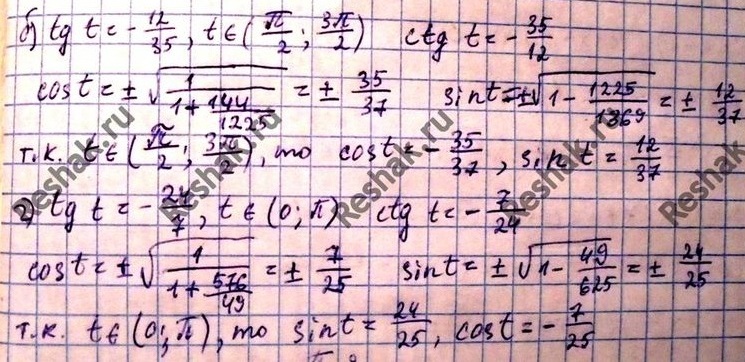 б) tg t = - 12/35, t ∈ (π/2; 3π/2) ctg t = - 35/12
cos t = ± √(1/(1 + 144/1225)) = ± 35/37 sin t = ± √(1 - 1225/1369) = ± 12/37
т.к. t ∈ (π/2; 3π/2), то cos t = - 35/37, sin t = 12/37
г) tg t = - 24/7, t ∈ (0; π) ctg t = - 7/24
cos t = ± √(1/(1 + 576/49)) = ± 7/25 sin t = ± √(1 - 49/625) = ± 24/25
т.к. t ∈ (0; π), то sin t = 24/25, cos t = - 7/25
Reshak.ru
Reshak.ru
Reshak.ru
Reshak.ru